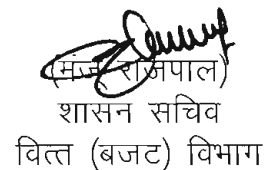 (मंजू राजपाल)
शासन सचिव
वित्त (बजट) विभाग